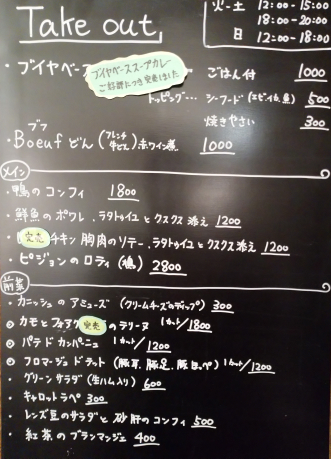 Take out
火-土 12:00-15:00
18:00-20:00
日 12:00-18:00
・ブイヤベース
ブイヤベーススープカレー
ご好評につき完売しました
ごはん付 1000
トッピング… シーフード(エビ・イカ、魚) 500
焼きやさい 300
ブフ
・Boeuf どん (フレンチ牛どん) 赤ワイン煮 1000
メイン
・鴨のコンフィ 1800
・鮮魚のポワレ、ラタトゥイユとクスクス添え 1200
完売 チキン 胸肉のソテー、ラタトゥイユとクスクス添え 1200
・ピジョンのロティ(鳩) 2800
前菜
・カニッシュのアミューズ (クリームチーズのディップ) 300
カモとフォアグラ 完売 のテリーヌ 1カット/1800
パテドカンパーニュ 1カット/1200
フロマージュドテット (豚耳、豚足、豚ほっぺ) 1カット/1200
・グリーンサラダ (生ハム入り) 600
・キャロットラペ 300
・レンズ豆のサラダと砂肝のコンフィ 500
・紅茶のブランマンジェ 400